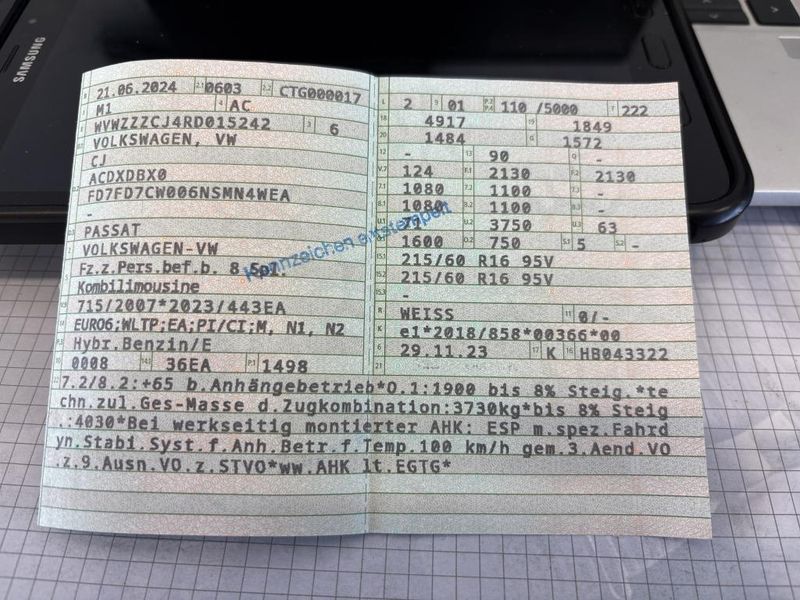 SAMSUNG
21.06.2024 0603 CTG000017
M1 AC
WVWZZZCJ4RD015242 6
VOLKSWAGEN, VW
CJ
ACDXDBX0
FD7FD7CW006NSMN4WEA
-
PASSAT
VOLKSWAGEN-VW
Fz.z.Pers.bef.b. 8 Spl
Kombilimousine
715/2007*2023/443EA
EURO6;WLTP;EA;PI/CI;M, N1, N2
Hybr.Benzin/E
0008 36EA 1498
Kennzeichen entstempelt
L 2 9 01 P.2 P.4 110 /5000 T 222
18 4917 19 1849
20 1484 G 1572
12 - 13 90 Q -
V.7 124 F.1 2130 F.2 2130
7.1 1080 7.2 1100 7.3 -
8.1 1080 8.2 1100 8.3 -
U.1 71 U.2 3750 U.3 63
O.1 1600 O.2 750 S.1 5 S.2 -
15.1 215/60 R16 95V
15.2 215/60 R16 95V
15.3 -
R WEISS 11 0/-
K e1*2018/858*00366*00
6 29.11.23 17 K 16 HB043322
21
7.2/8.2:+65 b.Anhängebetrieb*O.1:1900 bis 8% Steig.*te
chn.zul.Ges-Masse d.Zugkombination:3730kg*bis 8% Steig
.:4030*Bei werkseitig montierter AHK: ESP m.spez.Fahrd
yn.Stabi.Syst.f.Anh.Betr.f.Temp.100 km/h gem.3.Aend.VO
.z.9.Ausn.VO.z.STVO*ww.AHK lt.EGTG*